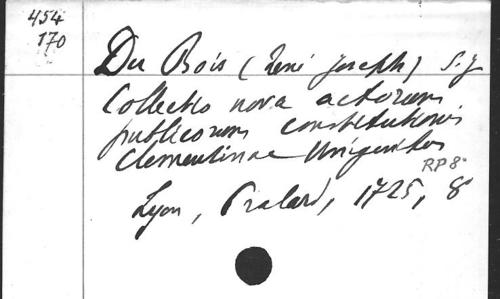 454
170
Du Bois (René Joseph) S.J.
Collectio nova actorum
publicorum constitutionis
Clementinae Unigenitus
RP 8°
Lyon, Pralard, 1725, 8°